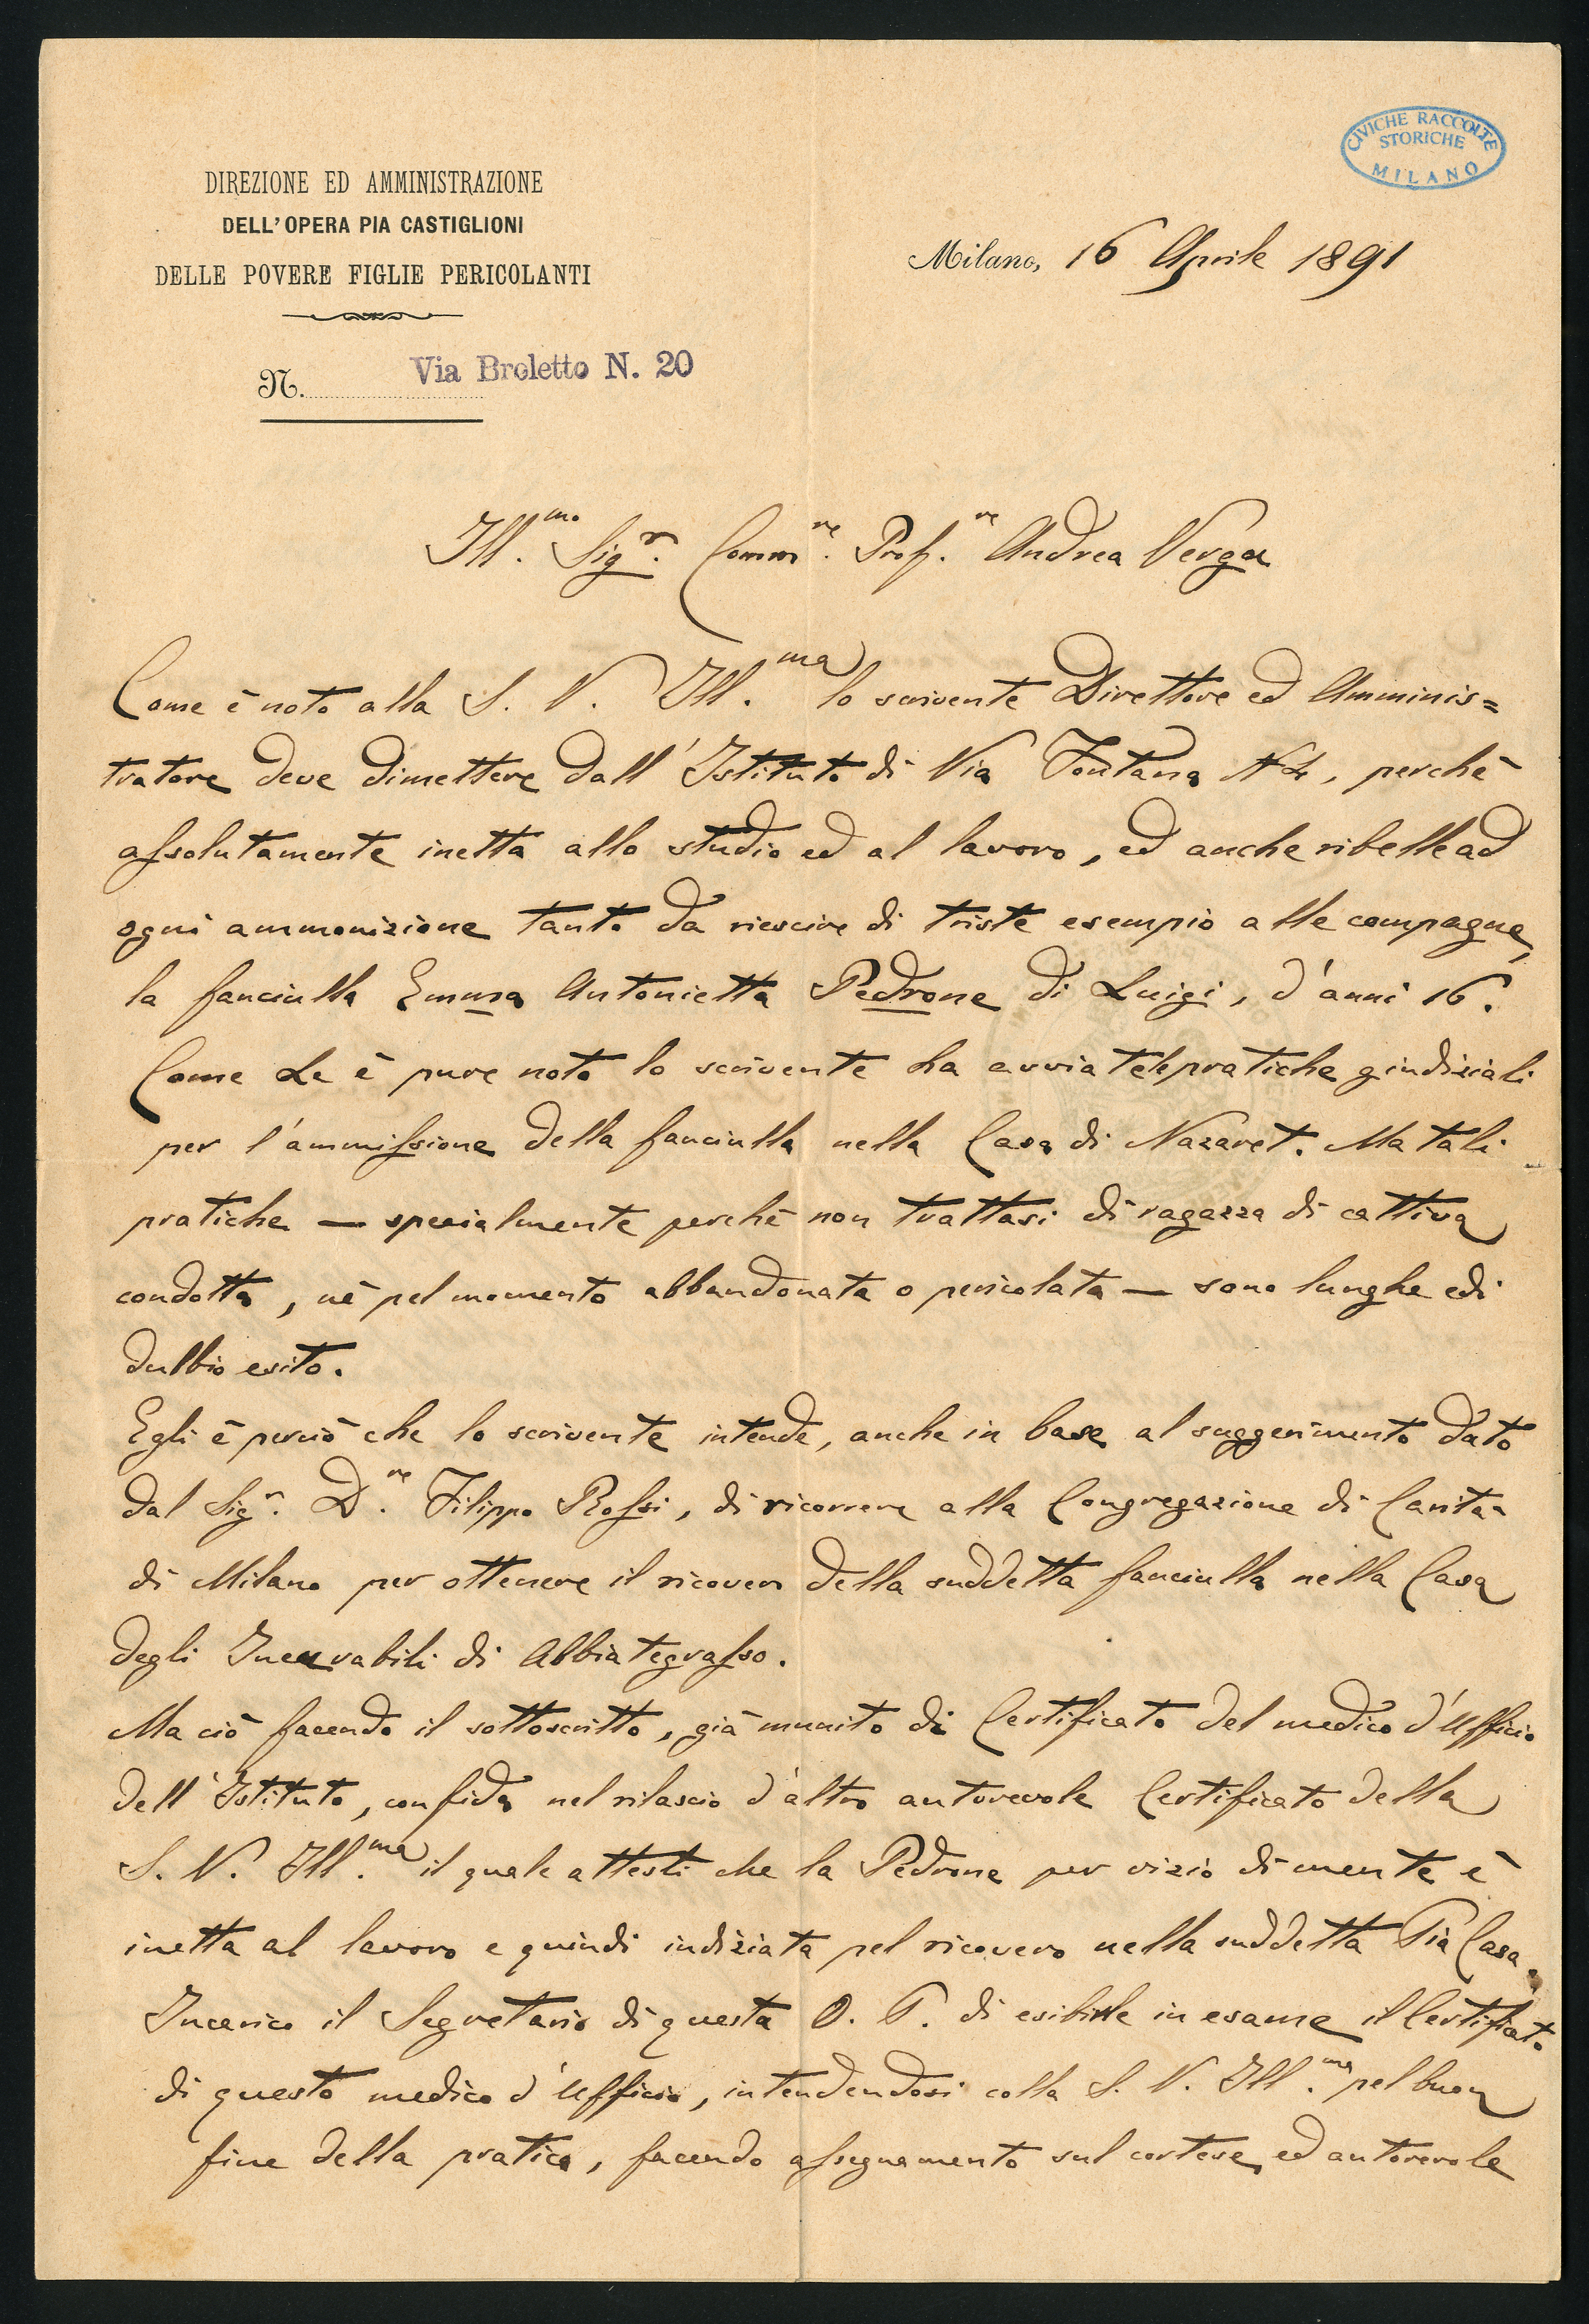 CIVICHE RACCOLTE
STORICHE
MILANO
DIREZIONE ED AMMINISTRAZIONE
DELL'OPERA PIA CASTIGLIONI
DELLE POVERE FIGLIE PERICOLANTI
Milano, 16 Aprile 1891
N. Via Broletto N. 20
Ill.mo Sigr. Commre. Prof.re Andrea Verga
Come è noto alla S. V. Ill.ma lo scrivente Direttore ed Amminis=
tratore deve dimettere dall'Istituto di Via Fontana N 4, perchè
assolutamente inetta allo studio ed al lavoro, ed anche ribelle ad
ogni ammonizione tanto da riescire di triste esempio alle compagne,
la fanciulla Emma Antonietta Pedrone di Luigi, d'anni 16.
Come Le è pure noto lo scrivente ha avviate le pratiche giudiziali
per l'ammissione della fanciulla nella Casa di Nazaret. Ma tali
pratiche — specialmente perchè non trattasi di ragazza di cattiva
condotta, nè pel momento abbandonata o pericolata — sono lunghe e di
dubbio esito.
Egli è perciò che lo scrivente intende, anche in base al suggerimento dato
dal Sigr. D.re Filippo Rossi, di ricorrere alla Congregazione di Carità
di Milano per ottenere il ricovero della suddetta fanciulla nella Casa
degli Incurabili di Abbiategrasso.
Ma ciò facendo il sottoscritto, già munito di Certificato del medico d'Ufficio
dell'Istituto, confida nel rilascio d'altro autorevole Certificato della
S. V. Ill.ma il quale attesti che la Pedrone per vizio di mente è
inetta al lavoro e quindi indiziata pel ricovero nella suddetta Pia Casa.
Incarico il Segretario di questa O. P. di esibirle in esame il Certificato
di questo medico d'Ufficio, intendendosi colla S. V. Ill.ma pel buon
fine della pratica, facendo assegnamento sul cortese, ed autorevole